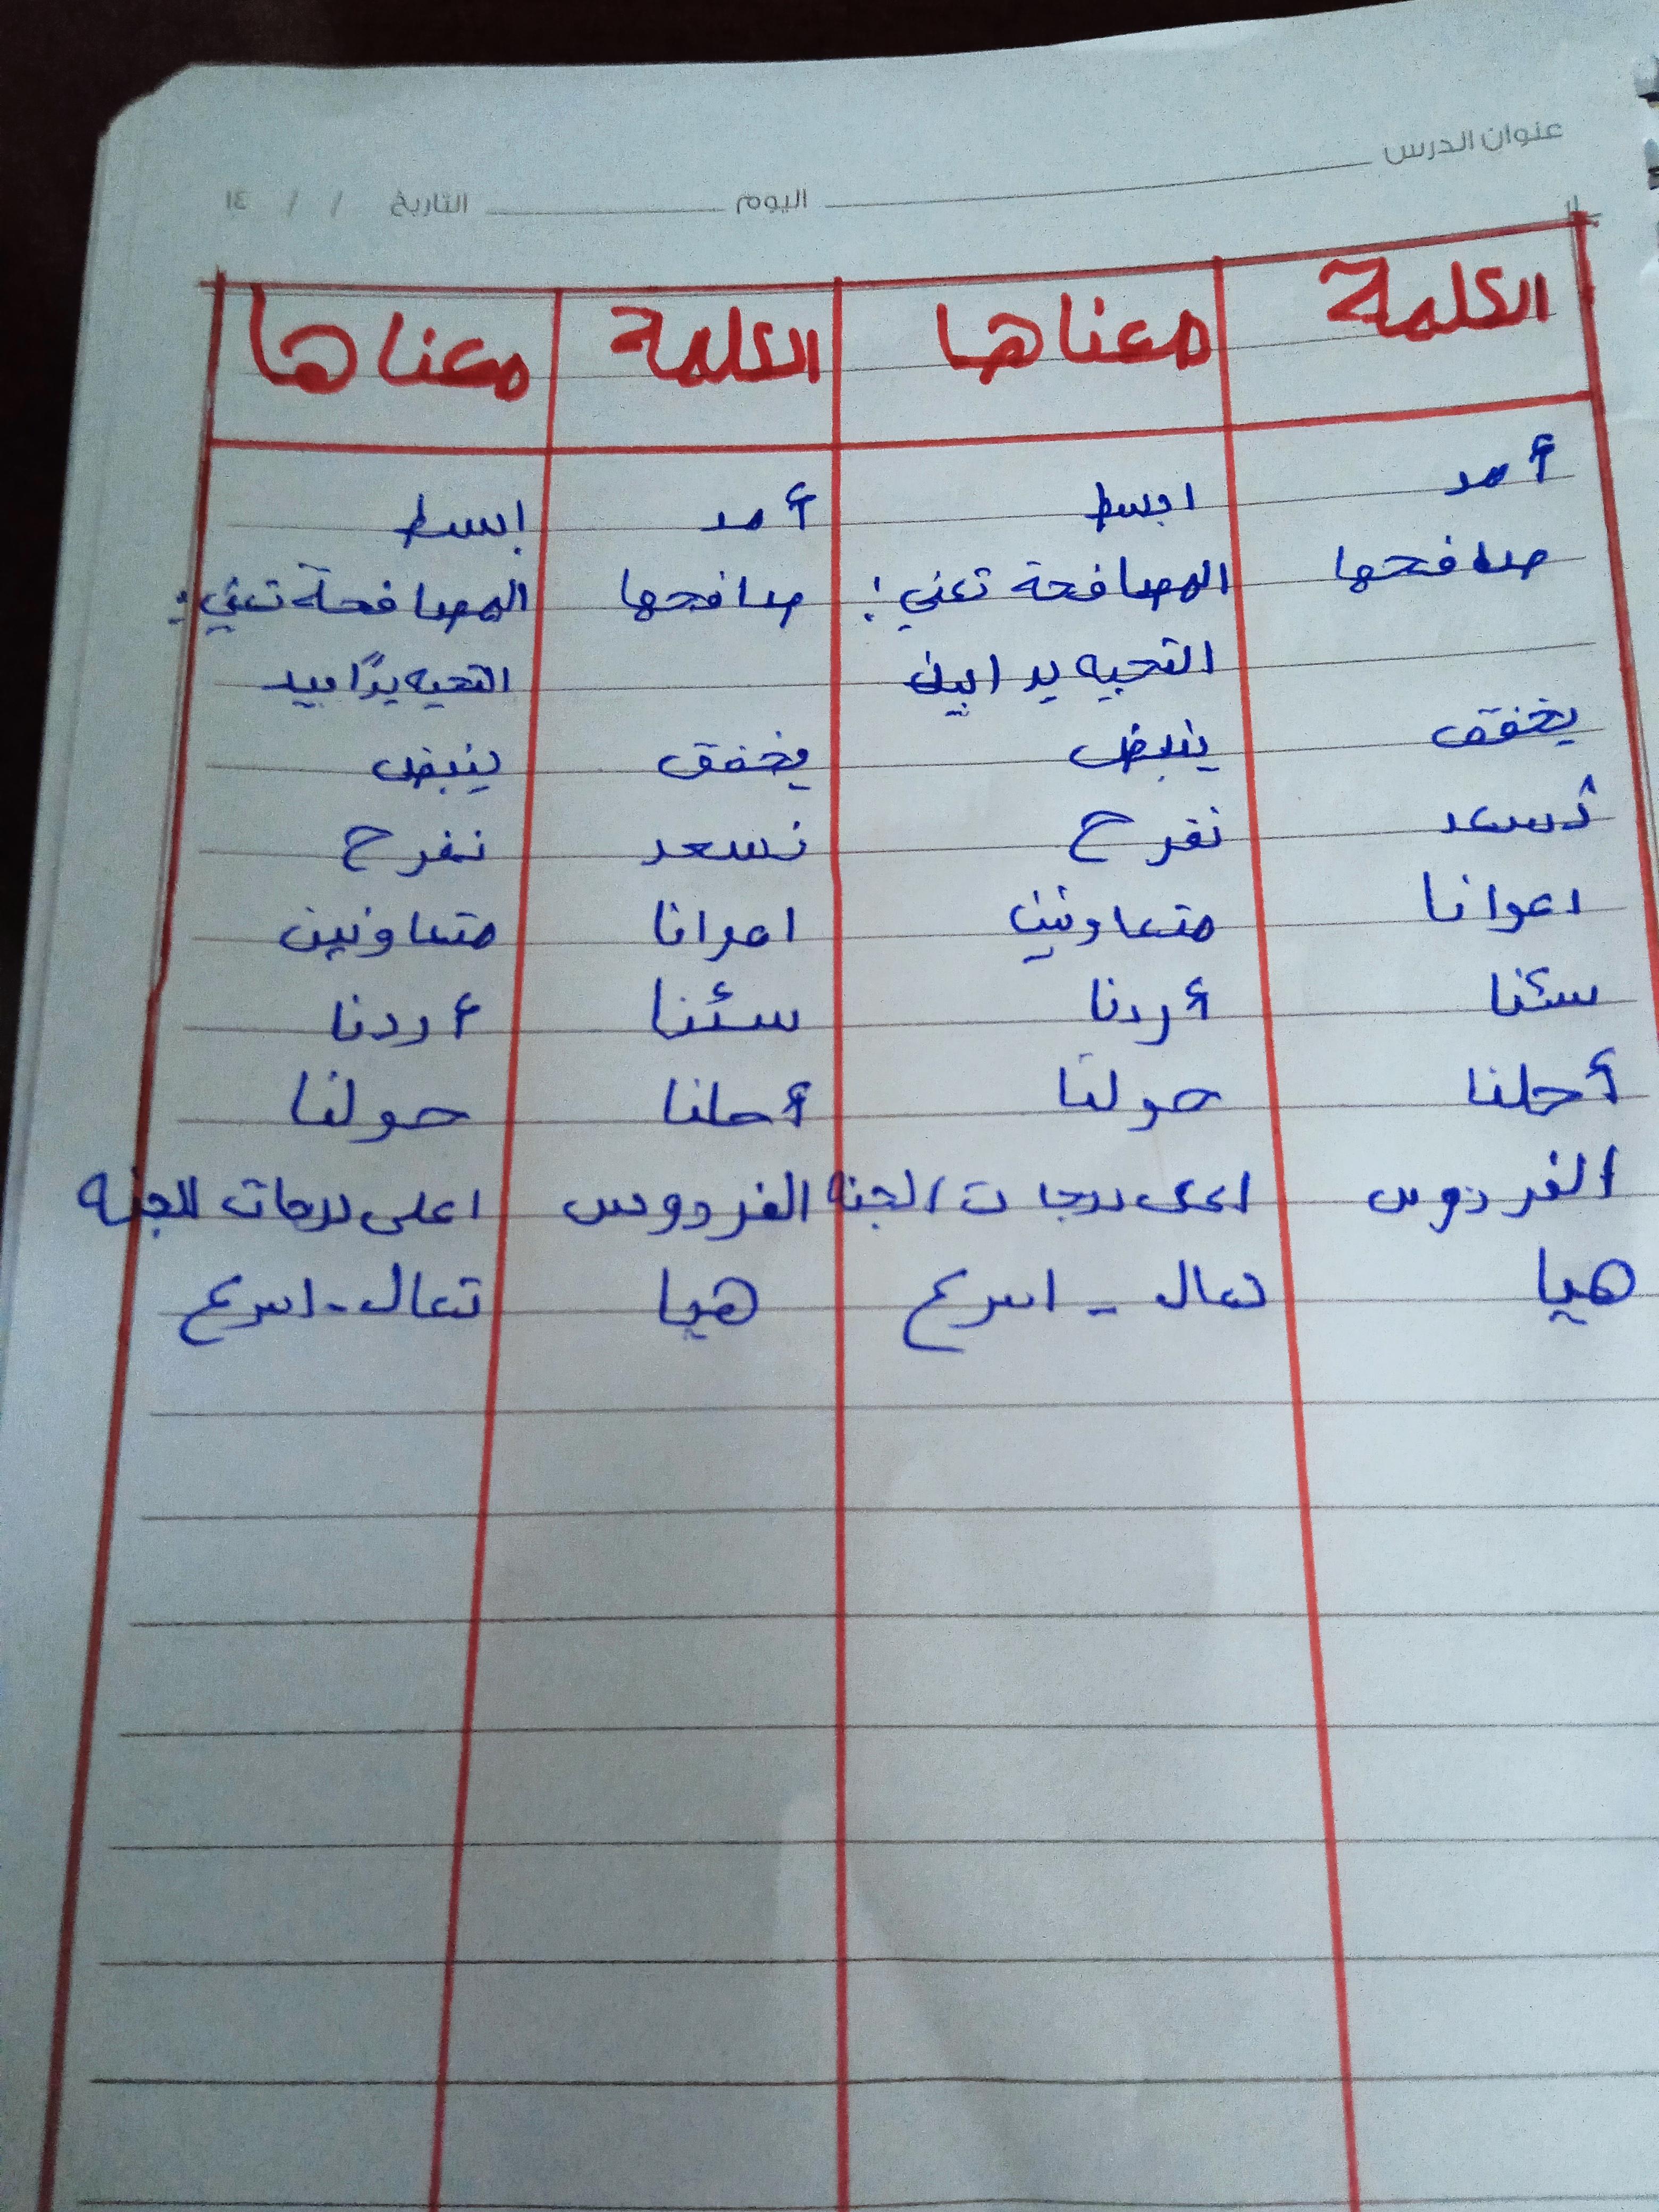 عنوان الدرس اليوم التاريخ / / ١٤
الكلمة معناها الكلمة معناها
أمد ابسط أمد ابسط
صافحها المصافحة تعني: صافحها المصافحة تعني:
التحيه يد ابيد التحيه يدًا بيد
يخفق ينبض يخفق ينبض
نسعد نفرح نسعد نفرح
اعوانا متعاونين اعوانا متعاونين
سئنا أردنا سئنا أردنا
أحلنا حولنا أحلنا حولنا
الفردوس اعلى درجات الجنه الفردوس اعلى درجات الجنه
هيا تعال - اسرع هيا تعال - اسرع